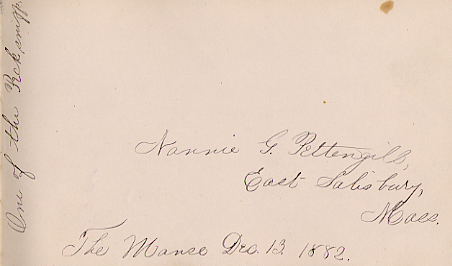 Nannie G. Pettengill,
East Salisbury,
Mass.
The Manse Dec. 13. 1882.
One of the